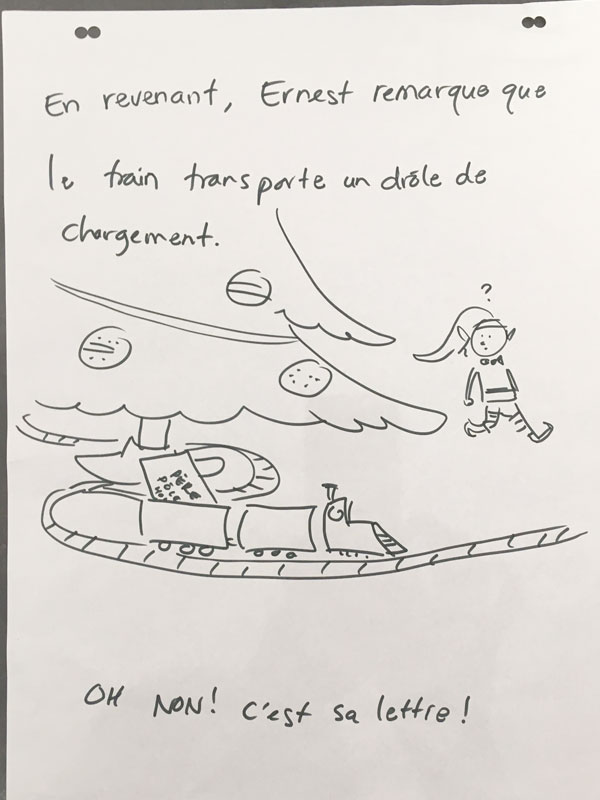 En revenant, Ernest remarque que
le train transporte un drôle de
chargement.
?
PÈRE
PÔLE
NO
OH NON! C'est sa lettre!